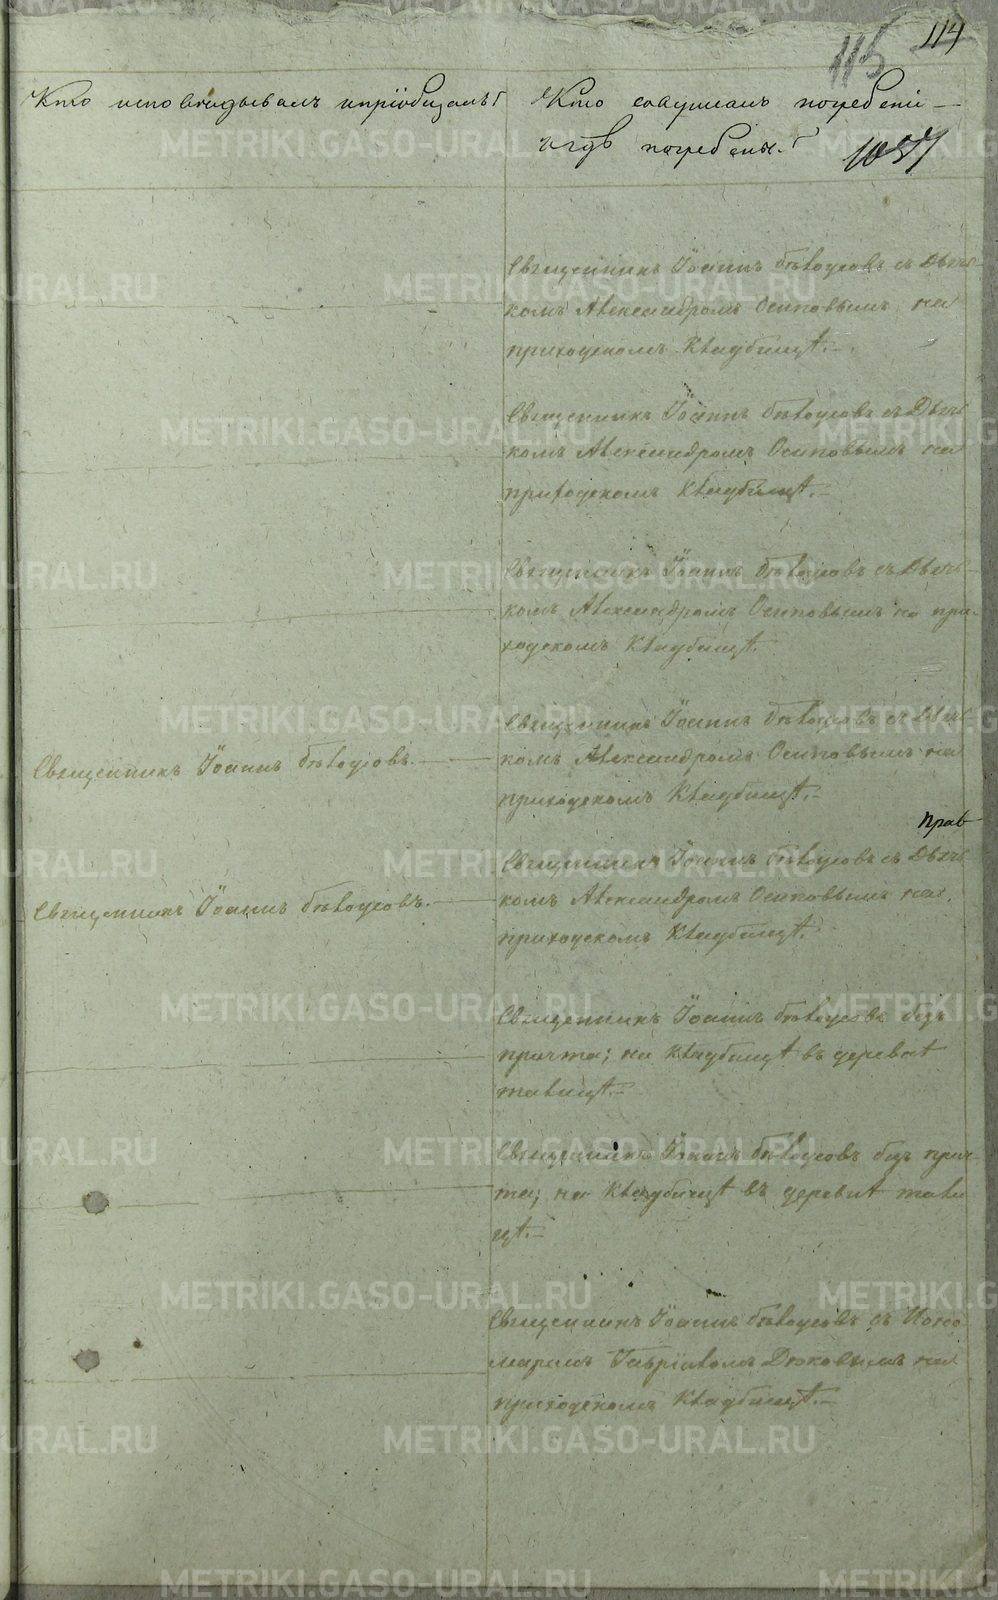 114
115
Кто исповѣдывалъ и пріобщалъ?
Кто совершалъ погребеніе
и гдѣ погребены?
1057
Священникъ Іоаннъ Бѣлоусовъ съ Дьяч-
комъ Александромъ Осиповымъ на
приходскомъ Кладбищѣ.
Священникъ Іоаннъ Бѣлоусовъ съ Дьяч-
комъ Александромъ Осиповымъ на
приходскомъ Кладбищѣ.
Священникъ Іоаннъ Бѣлоусовъ съ Дьяч-
комъ Александромъ Осиповымъ на при-
ходскомъ Кладбищѣ.
Священникъ Іоаннъ Бѣлоусовъ.
Священникъ Іоаннъ Бѣлоусовъ съ Дьяч-
комъ Александромъ Осиповымъ на
приходскомъ Кладбищѣ.
Священникъ Іоаннъ Бѣлоусовъ.
Прав
Священникъ Іоаннъ Бѣлоусовъ съ Дьяч-
комъ Александромъ Осиповымъ на
приходскомъ Кладбищѣ.
Священникъ Іоаннъ Бѣлоусовъ безъ
причта; на Кладбищѣ въ деревнѣ
талицѣ.
Священникъ Іоаннъ Бѣлоусовъ безъ прич-
та; на Кладбищѣ въ деревнѣ тали
цѣ.
Священникъ Іоаннъ Бѣлоусовъ съ Поно
маремъ Гавріиломъ Дюковымъ на
приходскомъ Кладбищѣ.
METRIKI.GASO-URAL.RU